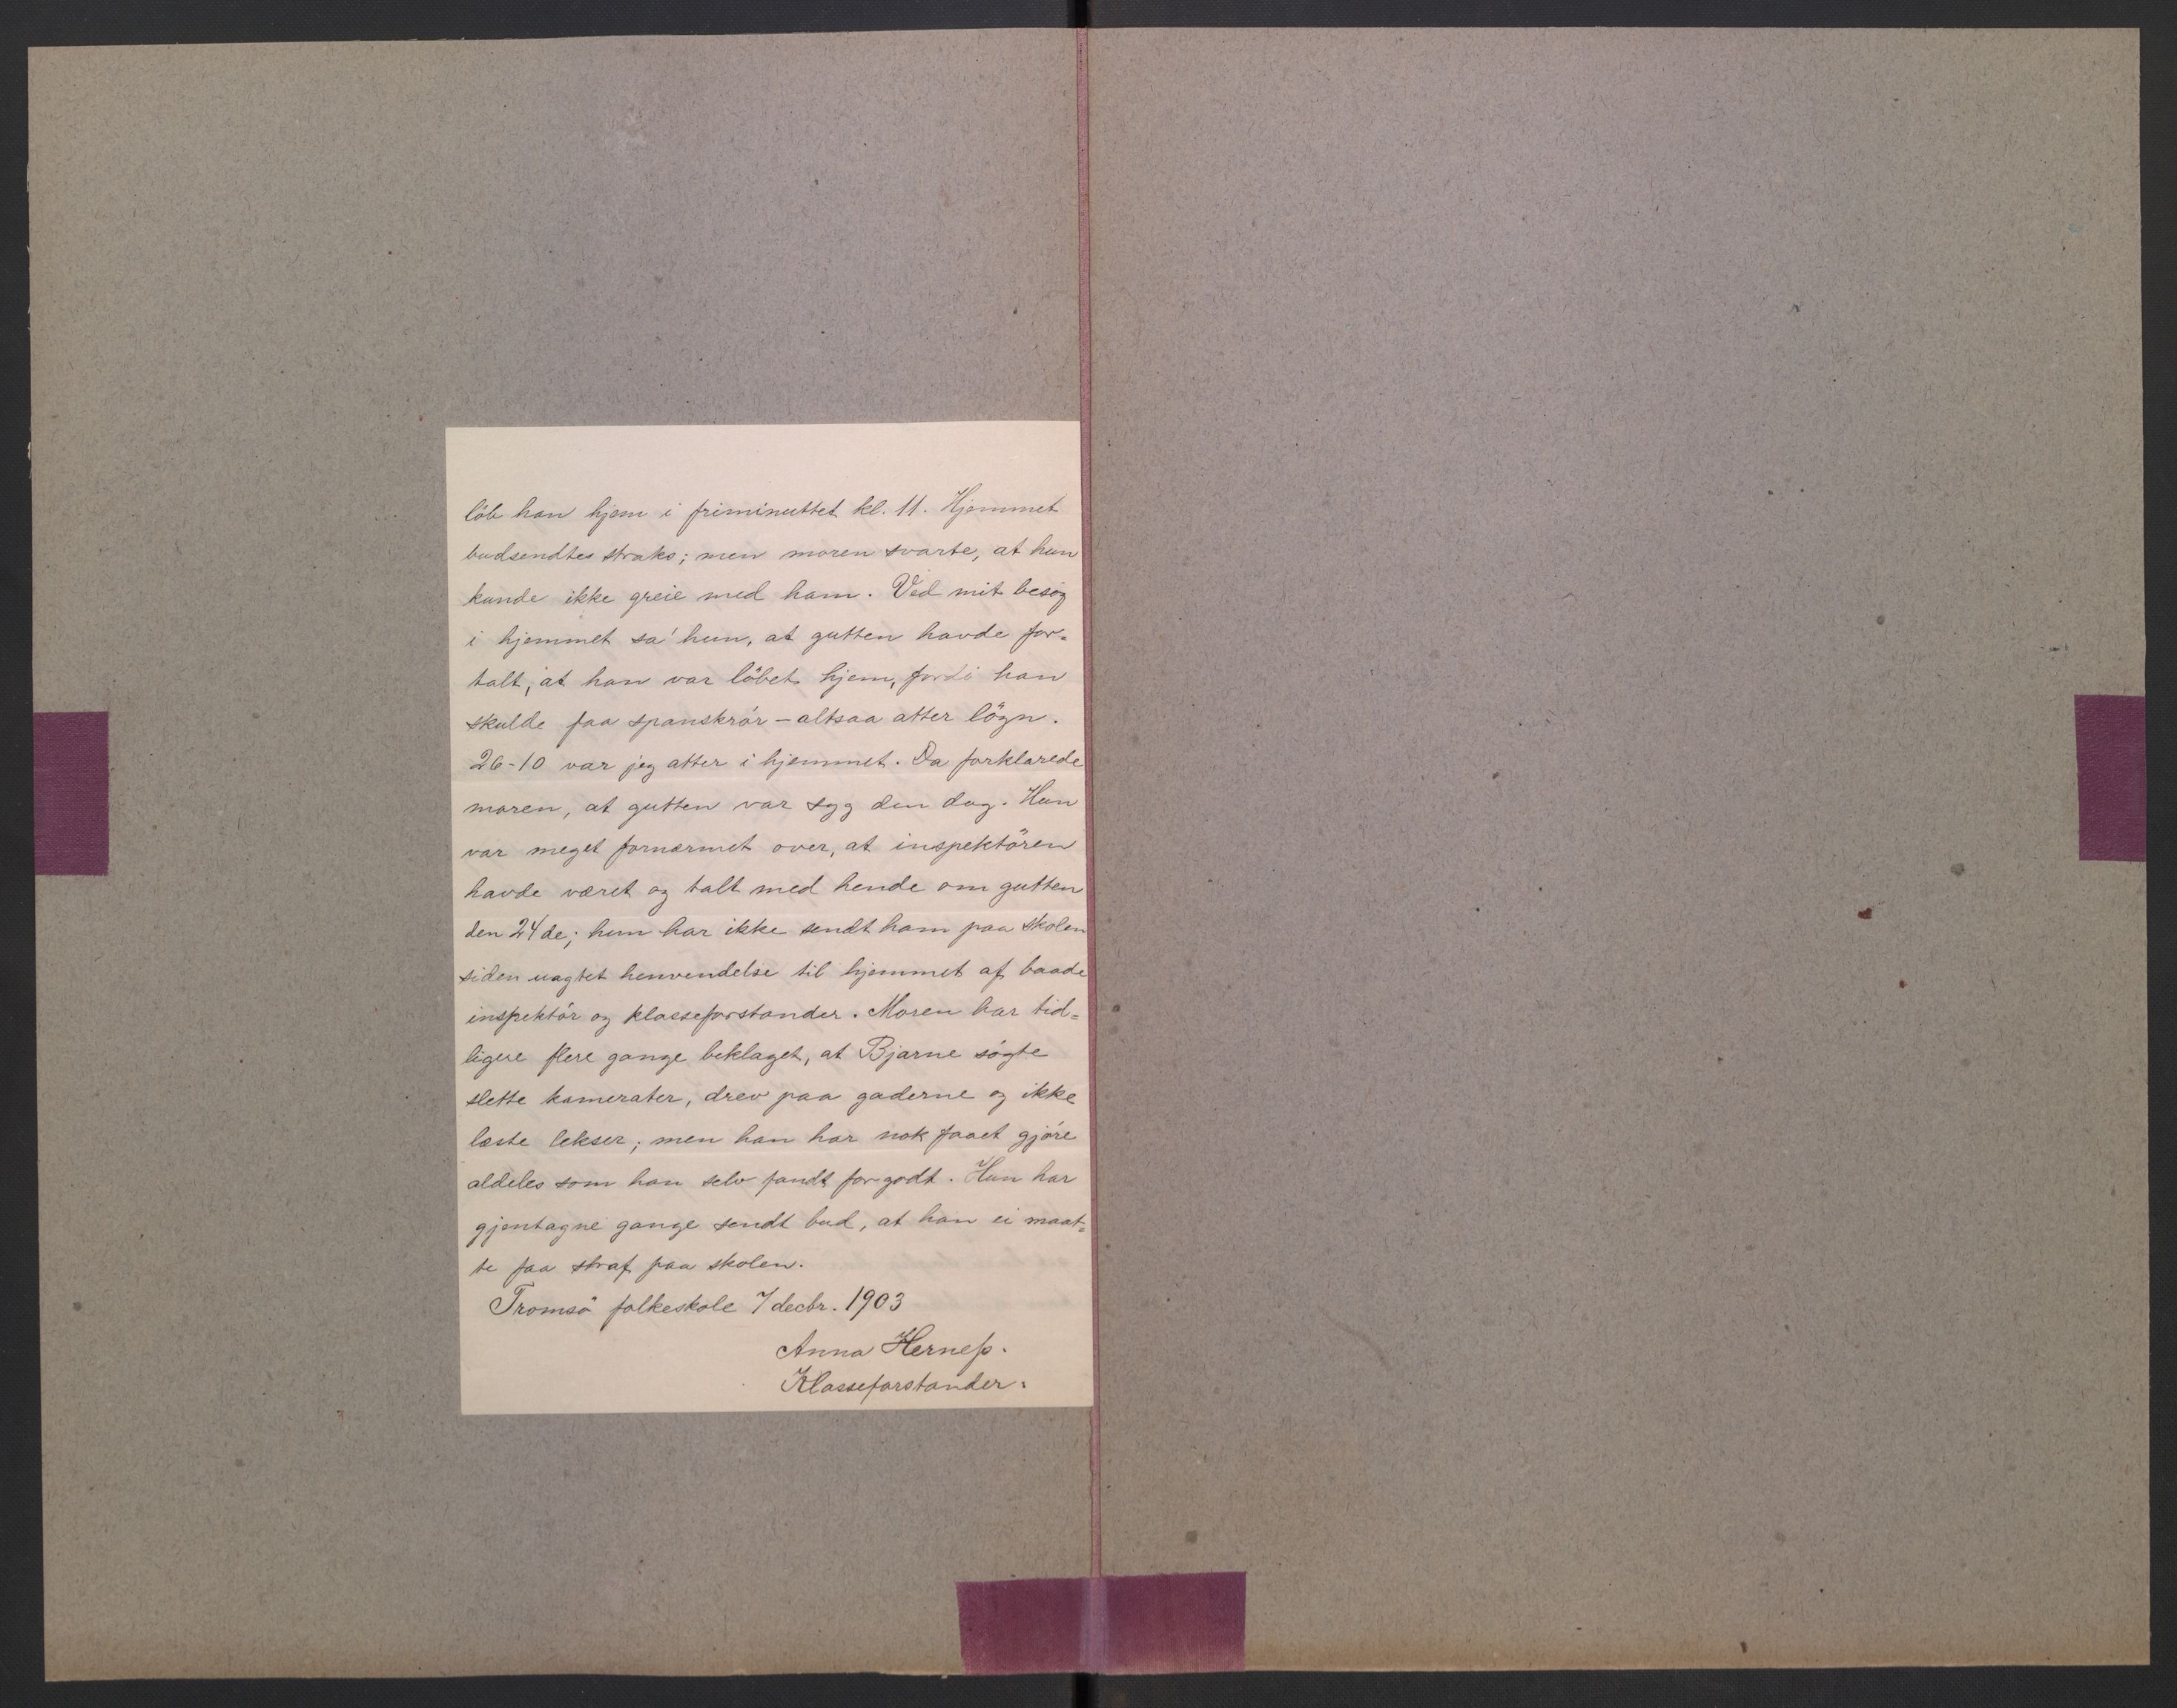 löb han hjem i friminuttet kl. 11. Hjemmet
budsendtes straks; men moren svarte, at hun
kunde ikke greie med ham. Ved mit besög
i hjemmet sa' hun, at gutten havde for=
talt, at han var löbet hjem, fordi han
skulde faa spanskrör – altsaa atter lögn.
26-10 var jeg atter i hjemmet. Da forklarede
moren, at gutten var syg den dag. Hun
var meget fornærmet over, at inspektören
havde været og talt med hende om gutten
den 24de; hun har ikke sendt ham paa skolen
siden uagtet henvendelse til hjemmet af baade
inspektör og klasseforstander. Moren har tid=
ligere flere gange beklaget, at Bjarne sögte
slette kamerater, drev paa gaderne og ikke
læste lekser; men han har nok faaet gjöre
aldeles som han selv fandt for godt. Hun har
gjentagne gange sendt bud, at han ei maat=
te faa straf paa skolen.
Tromsö folkeskole 7 decbr. 1903
Anna Herneß.
Klasseforstander.